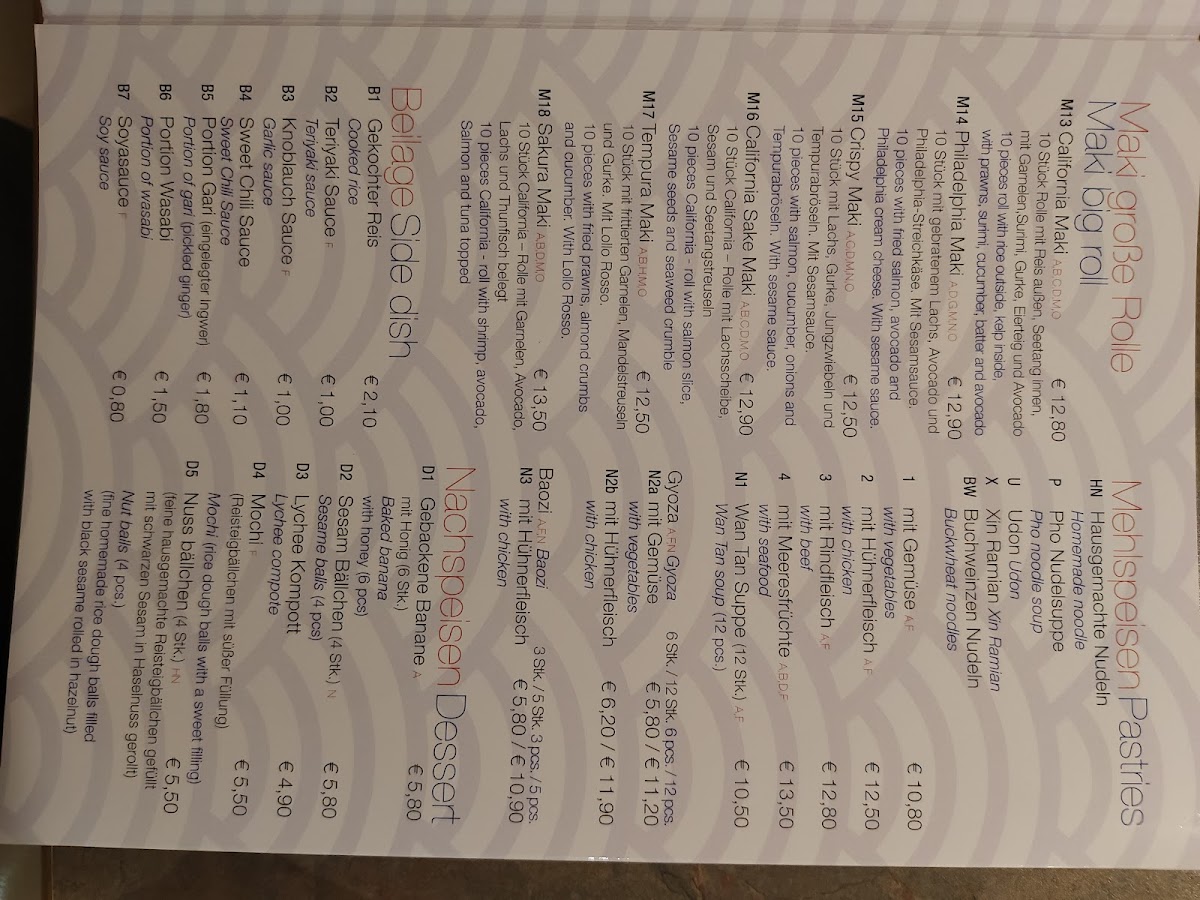 Maki große Rolle
Maki big roll
M13 California Maki A,B,C,D,M,O € 12,80
10 Stück Rolle mit Reis außen, Seetang innen,
mit Garnelen,Surimi, Gurke, Eierteig und Avocado
10 pieces roll with rice outside, kelp inside,
with prawns, surimi, cucumber, batter and avocado
M14 Philadelphia Maki A,D,G,M,N,O € 12,90
10 Stück mit gebratenem Lachs, Avocado und
Philadelphia-Streichkäse. Mit Sesamsauce.
10 pieces with fried salmon, avocado and
Philadelphia cream cheese. With sesame sauce.
M15 Crispy Maki A,C,D,M,N,O € 12,50
10 Stück mit Lachs, Gurke, Jungzwiebeln und
Tempurabröseln. Mit Sesamsauce.
10 pieces with salmon, cucumber, onions and
Tempurabröseln. With sesame sauce.
M16 California Sake Maki A,B,C,D,M,O € 12,90
10 Stück California – Rolle mit Lachsscheibe,
Sesam und Seetangstreuseln
10 pieces California - roll with salmon slice,
Sesame seeds and seaweed crumble
M17 Tempura Maki A,B,H,M,O € 12,50
10 Stück mit frittierten Garnelen, Mandelstreuseln
und Gurke. Mt Lollo Rosso.
10 pieces with fried prawns, almond crumbs
and cucumber. With Lollo Rosso.
M18 Sakura Maki A,B,D,M,O € 13,50
10 Stück California – Rolle mit Garnelen, Avocado,
Lachs und Thunfisch belegt
10 pieces California - roll with shrimp, avocado,
Salmon and tuna topped
Beilage Side dish
B1 Gekochter Reis € 2,10
Cooked rice
B2 Teriyaki Sauce F € 1,00
Teriyaki sauce
B3 Knoblauch Sauce F € 1,00
Garlic sauce
B4 Sweet Chili Sauce € 1,10
Sweet Chili Sauce
B5 Portion Gari (eingelegter Ingwer) € 1,80
Portion of gari (pickled ginger)
B6 Portion Wasabi € 1,50
Portion of wasabi
B7 Soyasauce F € 0,80
Soy sauce
Mehlspeisen Pastries
HN Hausgemachte Nudeln
Homemade noodle
P Pho Nudelsuppe
Pho noodle soup
U Udon Udon
X Xin Ramian Xin Ramian
BW Buchweinzen Nudeln
Buckwheat noodles
1 mit Gemüse A,F € 10,80
with vegetables
2 mit Hühnerfleisch A,F € 12,50
with chicken
3 mit Rindfleisch A,F € 12,80
with beef
4 mit Meeresfrüchte A,B,D,F € 13,50
with seafood
N1 Wan Tan Suppe (12 Stk.) A,F € 10,50
Wan Tan soup (12 pcs.)
Gyoza A,F,N Gyoza 6 Stk. / 12 Stk. 6 pcs. / 12 pcs.
N2a mit Gemüse € 5,80 / € 11,20
with vegetables
N2b mit Hühnerfleisch € 6,20 / € 11,90
with chicken
Baozi A,F,N Baozi 3 Stk. / 5 Stk. 3 pcs. / 5 pcs.
N3 mit Hühnerfleisch € 5,80 / € 10,90
with chicken
Nachspeisen Dessert
D1 Gebackene Banane A € 5,80
mit Honig (6 Stk.)
Baked banana
with honey (6 pcs)
D2 Sesam Bällchen (4 Stk.) N € 5,80
Sesame balls (4 pcs)
D3 Lychee Kompott € 4,90
Lychee compote
D4 Mochi F € 5,50
(Reisteigbällchen mit süßer Füllung)
Mochi (rice dough balls with a sweet filling)
D5 Nuss bällchen (4 Stk.) H,N € 5,50
(feine hausgemachte Reisteigbällchen gefüllt
mit schwarzen Sesam in Haselnuss gerollt)
Nut balls (4 pcs.)
(fine homemade rice dough balls filled
with black sesame rolled in hazelnut)